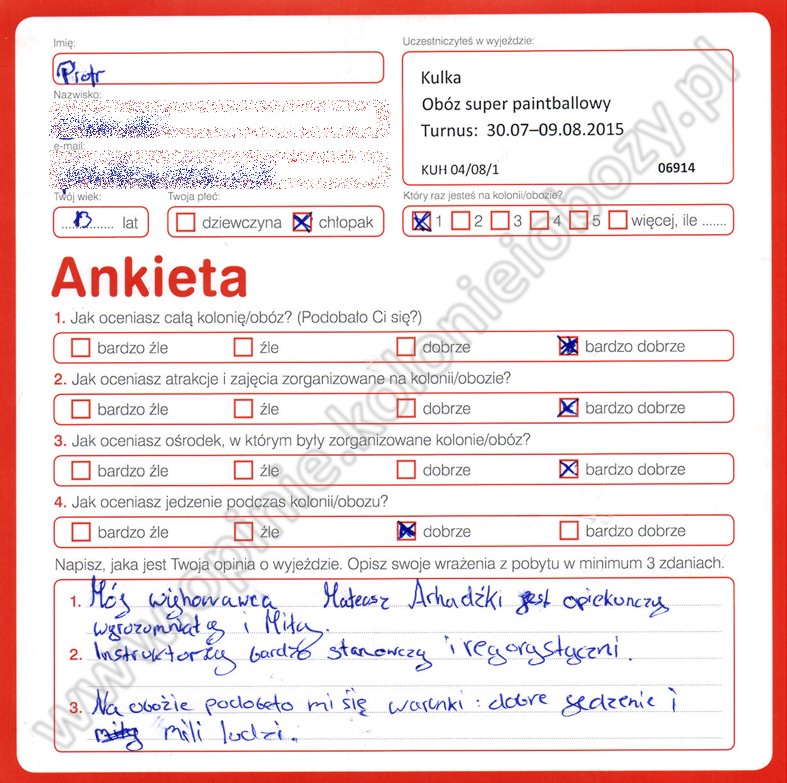 Imię:
Piotr
Nazwisko:
e-mail:
Twój wiek:
13 lat
Twoja płeć:
dziewczyna chłopak
Uczestniczyłeś w wyjeździe:
Kulka
Obóz super paintballowy
Turnus: 30.07–09.08.2015
KUH 04/08/1 06914
Który raz jesteś na kolonii/obozie?
1 2 3 4 5 więcej, ile .......
Ankieta
1. Jak oceniasz całą kolonię/obóz? (Podobało Ci się?)
bardzo źle źle dobrze bardzo dobrze
2. Jak oceniasz atrakcje i zajęcia zorganizowane na kolonii/obozie?
bardzo źle źle dobrze bardzo dobrze
3. Jak oceniasz ośrodek, w którym były zorganizowane kolonie/obóz?
bardzo źle źle dobrze bardzo dobrze
4. Jak oceniasz jedzenie podczas kolonii/obozu?
bardzo źle źle dobrze bardzo dobrze
Napisz, jaka jest Twoja opinia o wyjeździe. Opisz swoje wrażenia z pobytu w minimum 3 zdaniach.
1. Mój wyhowawca Mateusz Arhadźki jest opiekunczy
wyrozomniały i Miły.
2. Instruktorzy bardzo stanowczy i regorystyczni.
3. Na obozie podobało mi się warunki: dobre jedzenie i
mili ludzi.
www.opinie.kolonieiobozy.pl